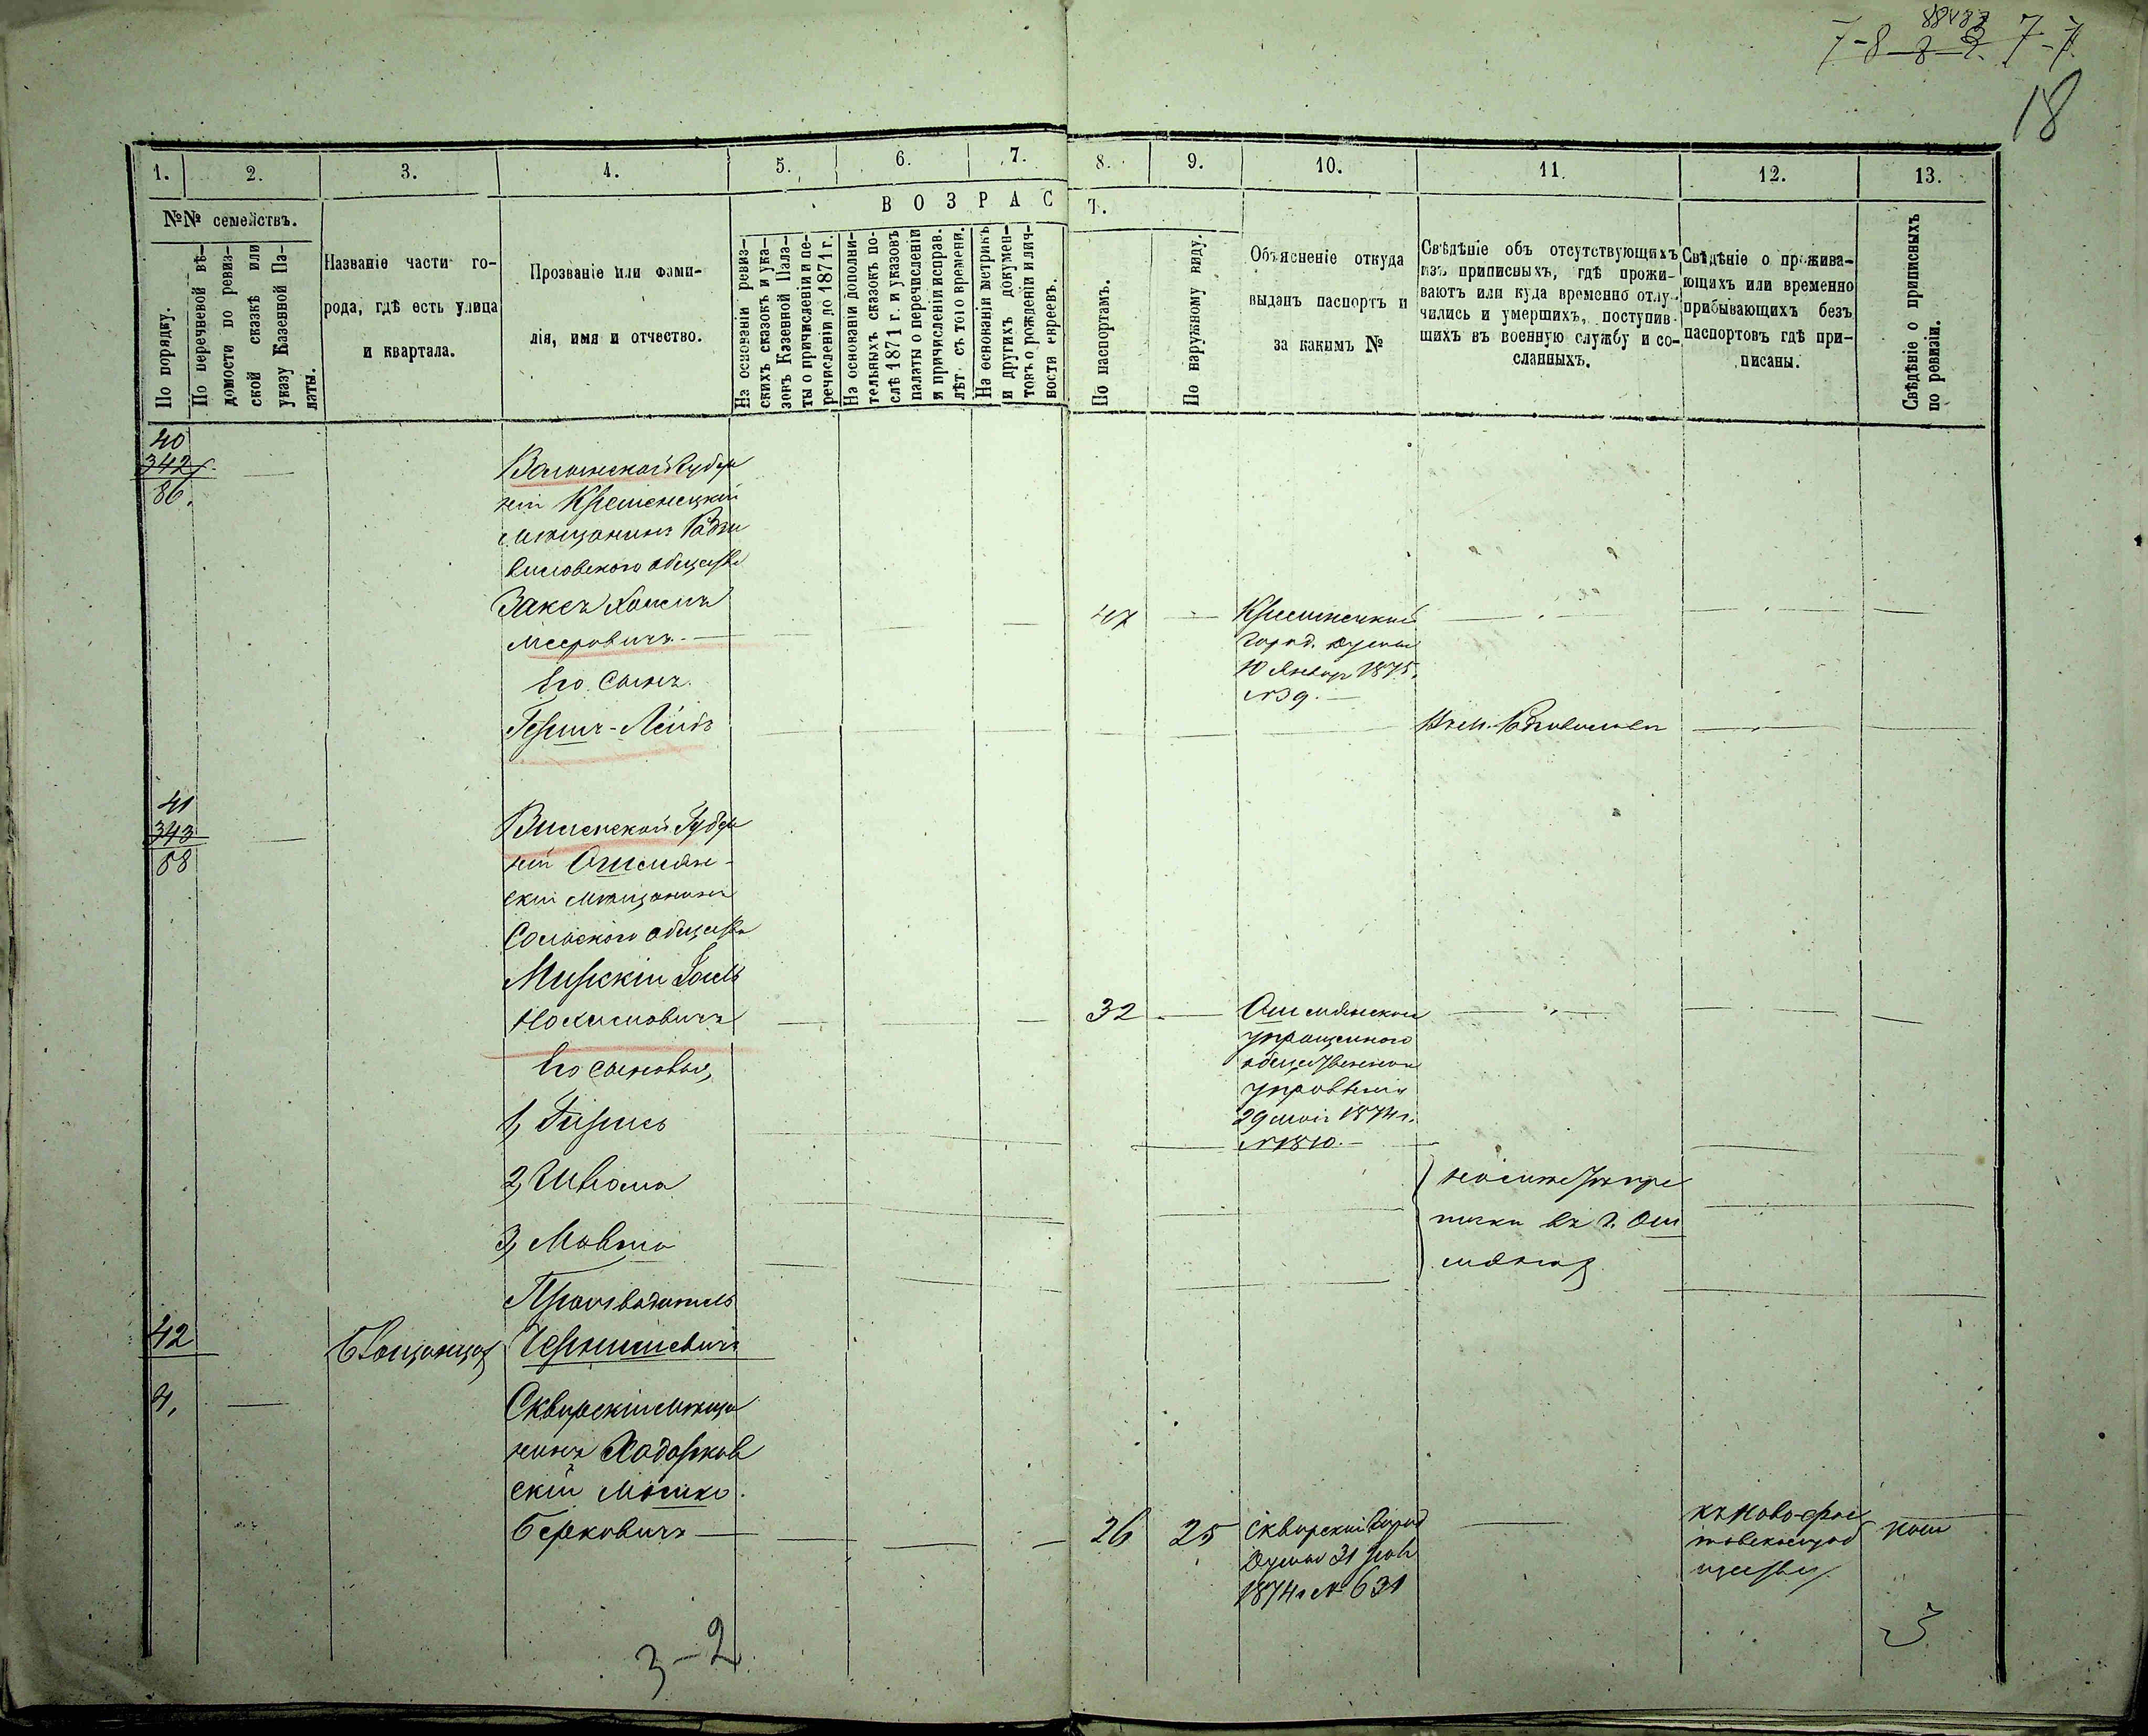 7-8 8 2 7-7
18
1. 2. 3. 4. 5. 6. 7. 8. 9. 10. 11. 12. 13.
№№ семействъ.
По порядку.
По перечневой вѣ-
домости по ревиз-
ской сказкѣ или
указу Казенной Па-
латы.
Названіе части го-
рода, гдѣ есть улица
и квартала.
Прозваніе или фами-
лія, имя и отчество.
ВОЗРАСТ.
На основаніи ревиз-
скихъ сказокъ и ука-
зовъ Казенной Пала-
ты о причисленіи и пе-
речисленіи до 1871 г.
На основаніи дополни-
тельныхъ сказокъ по-
слѣ 1871 г. и указовъ
палаты о перечисленіи
и причисленіи исправ.
лѣт съ того времени.
На основаніи мѣтрикъ
и другихъ докумен-
товъ о рожденіи и лич-
ности евреевъ.
По паспортамъ.
По наружному виду.
Объясненіе откуда
выданъ паспортъ и
за какимъ №
Свѣдѣніе объ отсутствующихъ
изъ приписныхъ, гдѣ прожи-
ваютъ или куда временно отлу-
чились и умершихъ, поступив-
шихъ въ военную службу и со-
сланныхъ.
Свѣдѣніе о прожива-
ющихъ или временно
прибывающихъ безъ
паспортовъ гдѣ при-
писаны.
Свѣдѣніе о приписныхъ
по ревизіи.
40
342
86.
Волынской Губер
ніи Кременецкій
мѣщанинъ Радзи
виловскаго общества
Заксъ Хаимъ
Мееровичъ
47
Кременецкой
город. думы
10 Январ 1875,
№ 39.
Его Сынъ
Гершъ-Лейбъ
Въ м. Радзивиловѣ
41
343
88
Виленской Губер
ніи Ошмян-
скій мѣщанинъ
Сольскаго общества
Мирскій Іосель
Нохимовичъ
32
Ошмянскаго
упрощеннаго
общественнаго
управленія
29 мая 1874 г.
№ 1810.
Его сыновья,
1, Гиршъ
2, Шлома
3, Мовша
на сите
въ г. Ош
мянах
Производитель
42
Бѣлощанца
Чернишевичъ
4,
Сквирскій мѣща
нинъ Ходорков
скій Мошко
Берковичъ
26 25
Сквирской Город
Думы 31 Янв
1874 г № 631
къ Ново-
товскому об
ществу
3
3-2